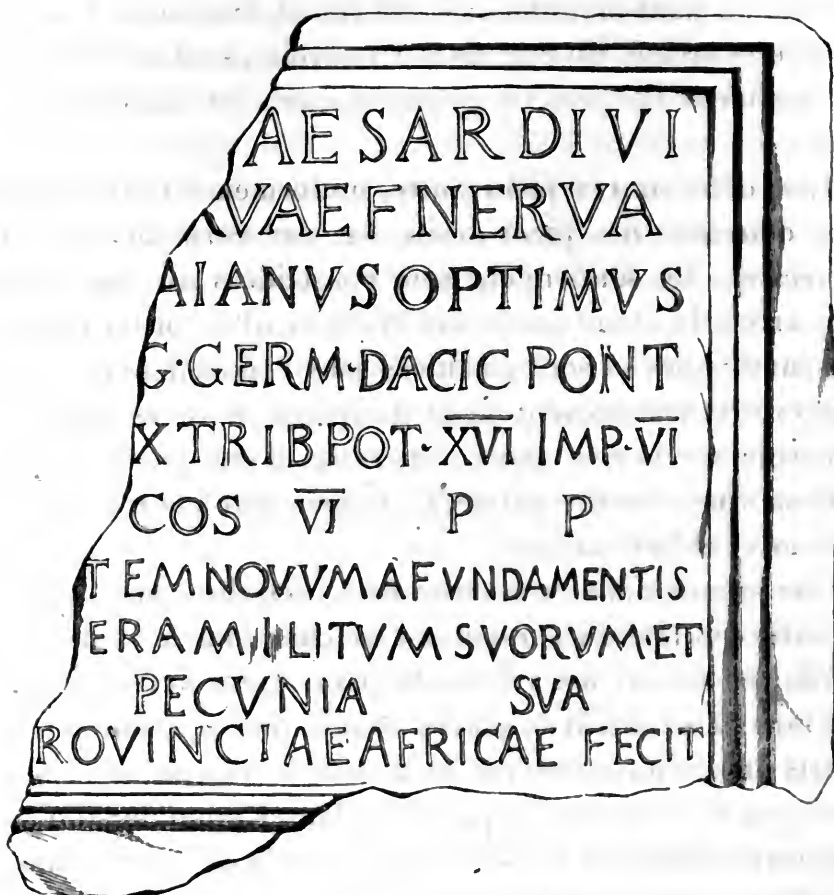 AESARDIVI
VAEFNERVA
AIANVSOPTIMVS
G·GERMDACICPONT
XTRIBPOT·XVI IMP·VI
COS VI P P
TEMNOVVMAFVNDAMENTIS
ERAMILITVMSVORVMET
PECVNIA SVA
ROVINCIAE·AFRICAE FECIT